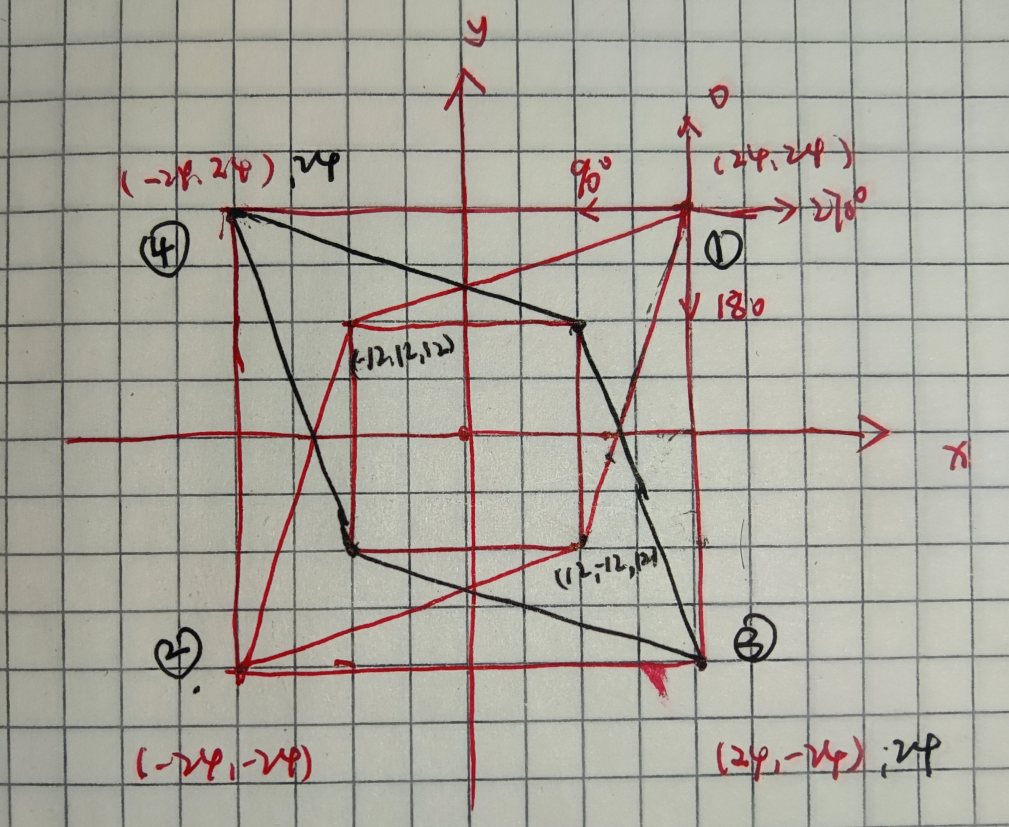 y
0
(-24, 24) , 24
90°
(24, 24)
270°
④
①
180
(-12,12,12)
x
(12,-12,12)
②
③
(-24, -24)
(24, -24) , 24